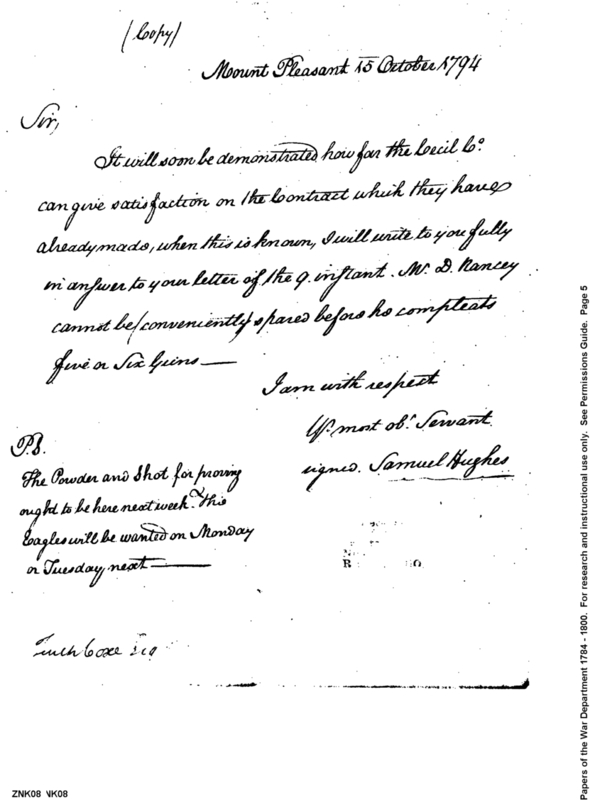 (Copy)
Mount Pleasant 15 October 1794
Sir,
It will soon be demonstrated how far the Cecil Co.
can give satisfaction on the Contract which they have
already made, when this is known, I will write to you fully
in answer to your letter of the 9. instant. Mr. D. Nancey
cannot be (conveniently) spared before he compleats
five or Six Guns —
I am with respect
Yr. most obt. Servant
signed. Samuel Hughes
P.S.
The Powder and Shot for proving
ought to be here next week. The
Eagles will be wanted on Monday
or Tuesday next —
Tench Coxe Esq
Papers of the War Department 1784 - 1800. For research and instructional use only. See Permissions Guide. Page 5
ZNK08 VK08